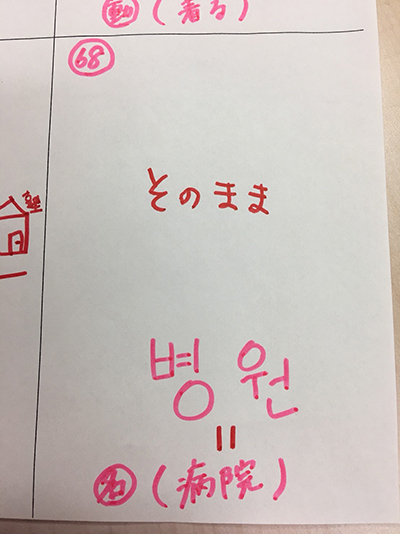 動 (着る)
68
そのまま
塾
병원
=
名 (病院)